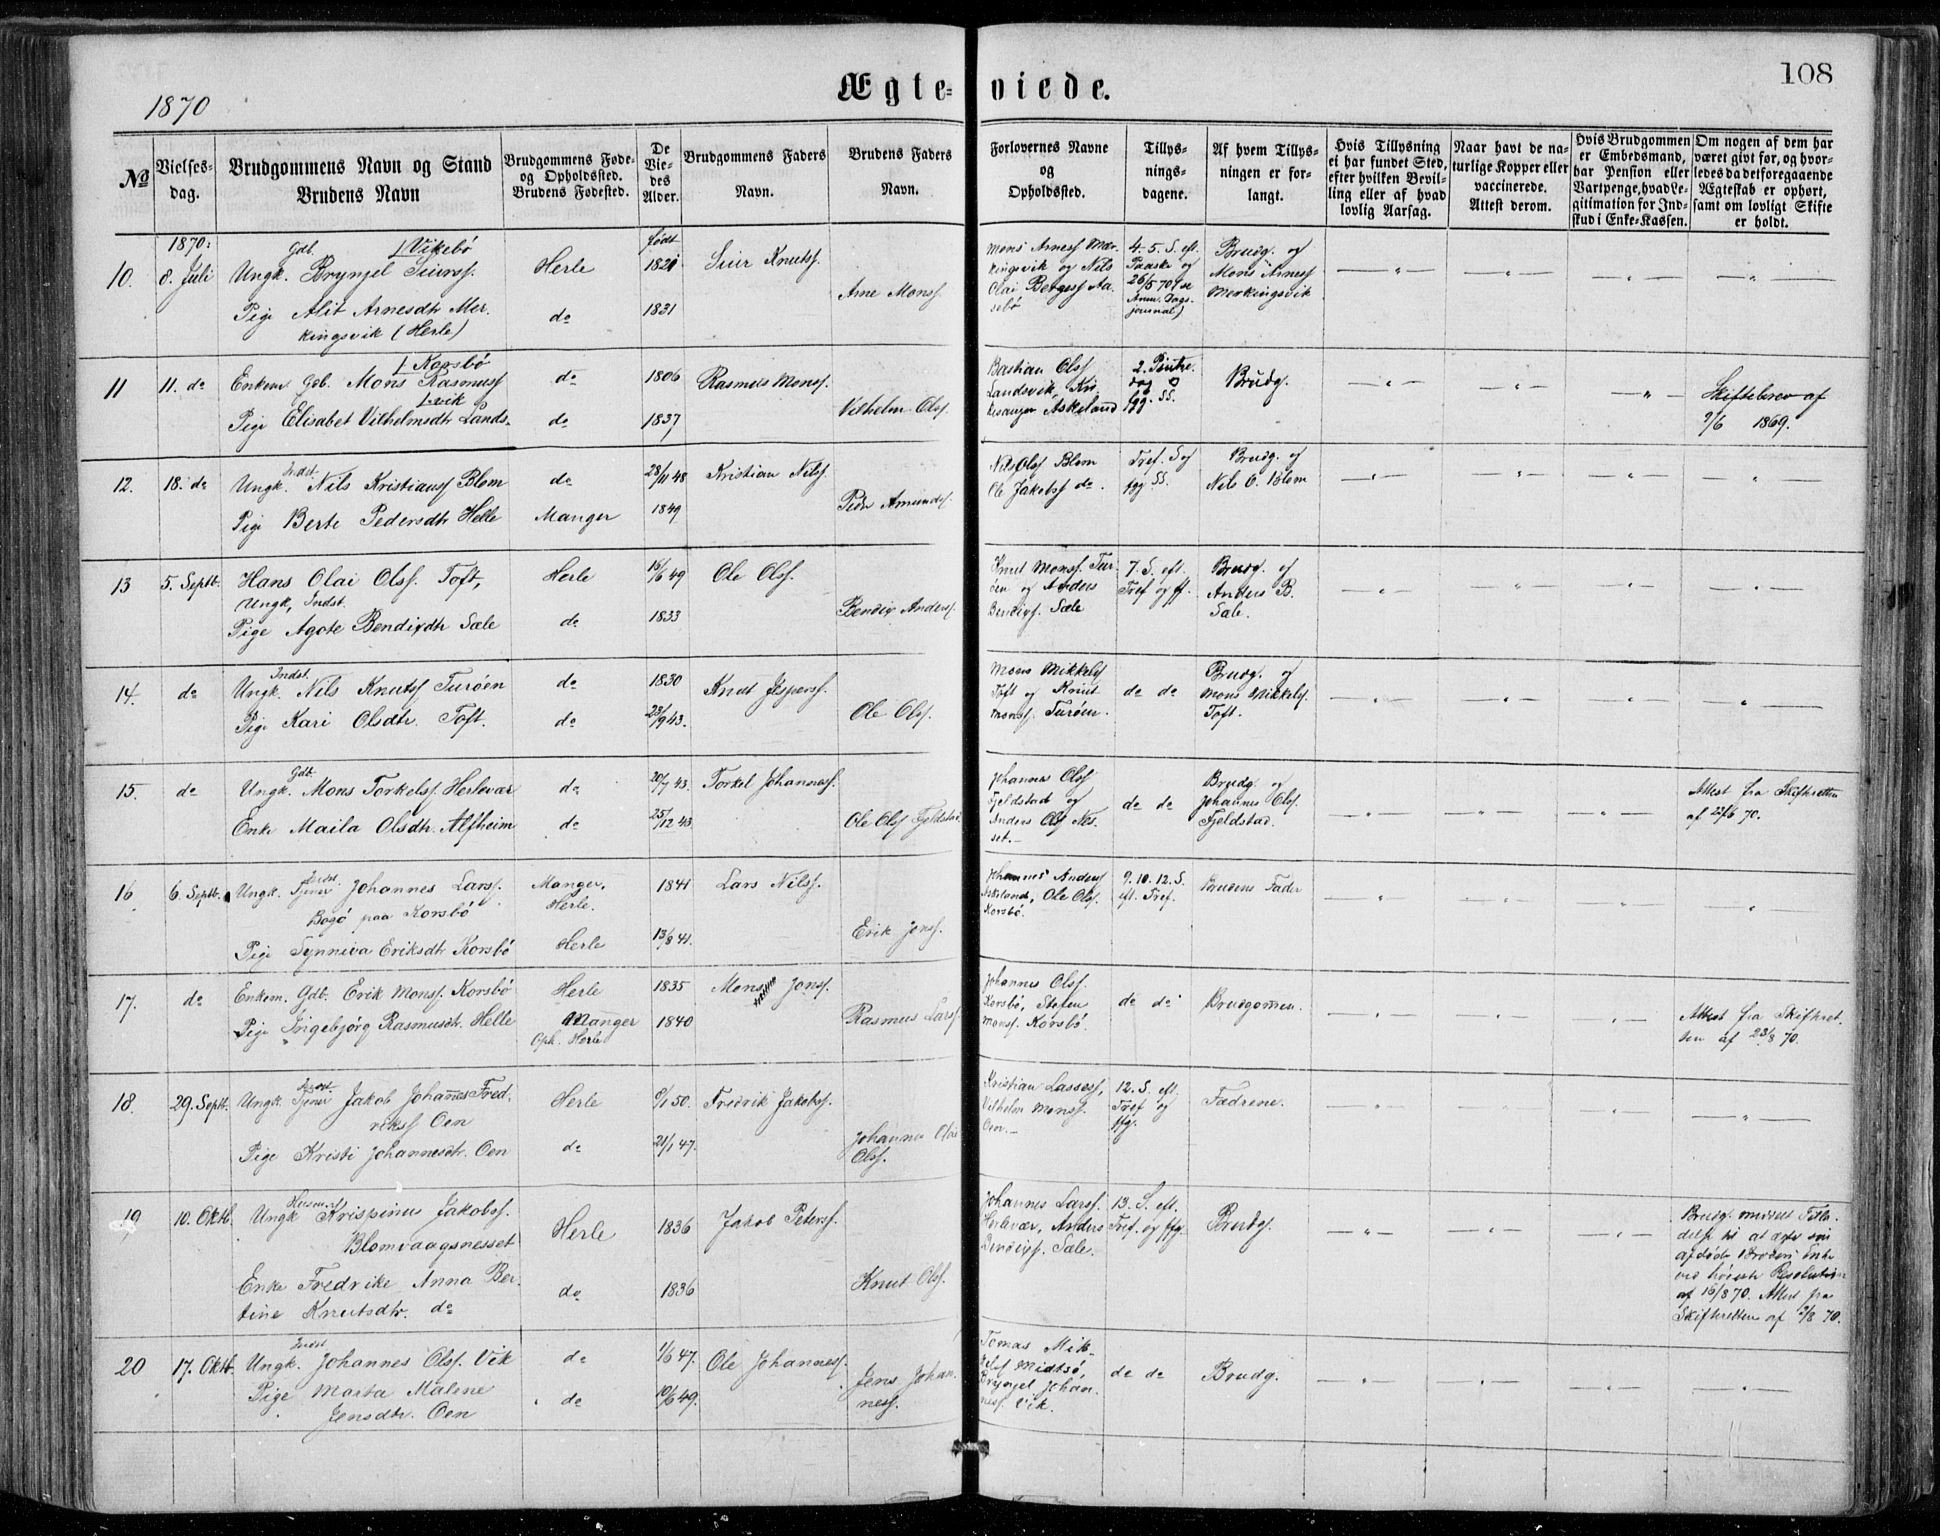 1870
Ægte-viede.
108
№
Vielses-
dag.
Brudgommens Navn og Stand
Brudens Navn
Brudgommens Føde-
og Opholdssted.
Brudens Fødested.
De
Vie-
des
Alder.
Brudgommens Faders
Navn.
Brudens Faders
Navn.
Forlovernes Navne
og
Opholdssted.
Tillys-
nings-
dagene.
Af hvem Tillys-
ningen er for-
langt.
Hvis Tillysning
ei har fundet Sted,
efter hvilken Bevil-
ling eller af hvad
lovlig Aarsag.
Naar havt de na-
turlige Kopper eller
vaccinerede.
Attest derom.
Hvis Brudgommen
er Embedsmand,
har Pension eller
Vartpenge, hvad Le-
gitimation for Ind-
skud i Enke-Kassen.
Om nogen af dem har
været givt før, og hvor-
ledes da det foregaaende
Ægteskab er ophørt,
samt om lovligt Skifte
er holdt.
10.
1870:
8. Juli
Gdb. Vikebø
Ungk. Brynjel Siurss.
Pige Alit Arnesdtr Mer-
kingsvik (Herle)
Herle
do
født
1821
1831
Siur Knutss.
Arne Monss.
Mons Arness Mer-
kingsvik og Nils
Olai Bergess Aa-
sebø
4. 5. S. eft.
Paaske og
26/5 70 (se
Anm. Dags-
journal)
Brudg. og
Mons Arness
Merkingsvik
11
11. do
Korsbø
Enkem. Gdb. Mons Rasmuss
vik
Pige Elisabet Vilhelmsdtr Lands-
do
do
1806
1837
Rasmus Monss.
Vilhelm Olss.
Bastian Olss
Landsvik,
Askeland
2. Pintse-
dag o
fgg. SS.
Brudg.
Skiftebrev af
9/6 1869.
12.
18. do
Indst.
Ungk. Nils Kristianss Blom
Pige Berte Pedersdtr Helle
do
Manger
28/11 48
1849
Kristian Nilss.
Peder Amundss.
Nils Olss Blom
Ole Jakobss do.
Tref. S og
fgg SS.
Brudg. og
Nils O. Blom
13
5. Septb.
Hans Olai Olss. Toft,
Ungk, Indst.
Pige Agote Bendixdtr Sæle
Herle
do
16/6 49
1833
Ole Olss.
Bendix Anderss.
Knut Monss. Tur-
øen og Anders
Bendixs. Sæle
7. S. eft.
Tref og ff.
Brudg. og
Anders B.
Sæle.
14.
do
Indst.
Ungk. Nils Knutss Turøen
Pige Kari Olsdtr. Toft.
do
do
1830
23/9 43.
Knut Jesperss.
Ole Olss.
Mons Mikkelss
Toft og Knut
Monss. Turøen.
do do
Brudg. og
Mons Mikkelss.
Toft.
15.
do
Gdb.
Ungk. Mons Torkelss. Herlevær
Enke Maila Olsdtr. Alfheim
do
do
20/7 43.
25/12 43
Torkel Johanness.
Ole Olss Fjeldstad
Johannes Olss
Fjeldstad og
Anders Olss Nes-
set.
do do
Brudg. og
Johannes Olss.
Fjeldstad.
Attest fra Skifteretten
af 22/6 70.
16
6. Septb.
Indst.
Ungk. Tjener Johannes Larss.
Bogø paa Korsbø
Pige Synniva Eriksdtr Korsbø
Manger.
Herle.
Herle
1841
13/8 41.
Lars Nilss.
Erik Jonss.
Johannes Anderss
Askeland, Ole Olss.
Korsbø.
9. 10. 12. S.
eft. Tref.
Brudens Fader
17.
do
Enkem. Gdb. Erik Monss. Korsbø
Pige Ingebjørg Rasmusdtr. Helle
Herle
Manger
Oph. Herle
1835
1840
Mons Jonss.
Rasmus Larss.
Johannes Olss.
Korsbø, Stefen
Monss. Korsbø.
do do
Brudgommen.
Attest fra Skifteret-
ten af 23/8 70.
18.
29. Septb.
Indst.
Ungk. Tjener Jakob Johannes Fred-
rikss Oen
Pige Kristi Johannesdtr. Oen
Herle
do
6/1 50.
21/1 47.
Fredrik Jakobss.
Johannes Olai
Olss.
Kristian Lassess,
Vilhelm Monss.
Oen.
12. S. eft.
Tref og
ffg.
Fædrene.
19
10. Oktb.
Husmand
Ungk Krispinus Jakobss.
Blomvaagsnesset
Enke Fredrike Anna Ber-
tine Knutsdtr. do
Herle
do
1836
1836
Jakob Peterss.
Knut Olss.
Johannes Larss.
Herlevær, Anders
Bendixss. Sæle.
13. S. eft.
Tref. og ffg.
Brudg.
Brudg. meddelt Tilla-
delse til at ægte sin
afdøde Broders Enke
ved høieste Resolution
af 16/8 70. Attest fra
Skifteretten af 2/8 70.
20
17. Oktb.
Indst
Ungk. Johannes Olss. Vik
Pige Marta Malene
Jensdtr. Oen
do
do
1/6 47.
10/6 49.
Ole Johanness.
Jens Johan-
ness.
Tomas Mik-
kelss Midtsø,
Brynjel Johan-
ness. Vik.
do do
Brudg.